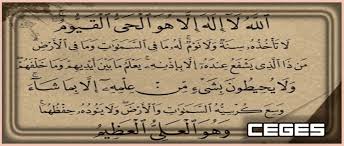 اللَّهُ لَا إِلَٰهَ إِلَّا هُوَ الْحَيُّ الْقَيُّومُ
لَا تَأْخُذُهُ سِنَةٌ وَلَا نَوْمٌ لَهُ مَا فِي السَّمَوَاتِ وَمَا فِي الْأَرْضِ
مَن ذَا الَّذِي يَشْفَعُ عِندَهُ إِلَّا بِإِذْنِهِ يَعْلَمُ مَا بَيْنَ أَيْدِيهِمْ وَمَا خَلْفَهُمْ
وَلَا يُحِيطُونَ بِشَيْءٍ مِّنْ عِلْمِهِ إِلَّا بِمَا شَاءَ
وَسِعَ كُرْسِيُّهُ السَّمَوَاتِ وَالْأَرْضَ وَلَا يَئُودُهُ حِفْظُهُمَا
وَهُوَ الْعَلِيُّ الْعَظِيمُ
CEGES